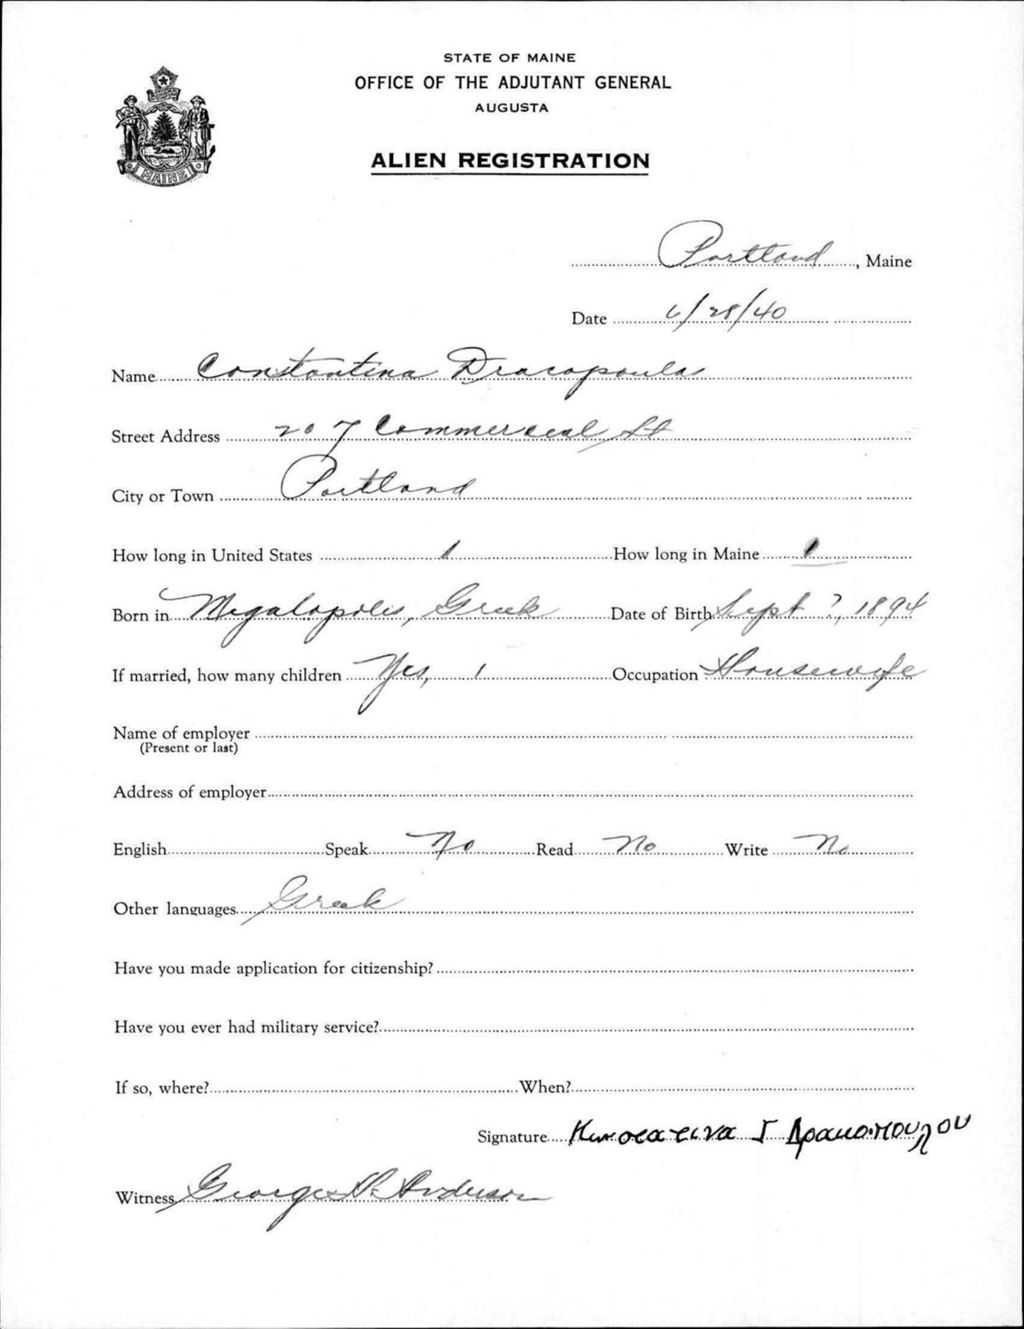 STATE OF MAINE
OFFICE OF THE ADJUTANT GENERAL
AUGUSTA
ALIEN REGISTRATION
MAINE
Portland, Maine
Date 6/28/40
Name Constantina Dracopoulas
Street Address 207 Commercial St
City or Town Portland
How long in United States 1 How long in Maine 1
Born in Megalopolis, Greek Date of Birth Sept ?, 1894
If married, how many children Yes, 1 Occupation Housewife
Name of employer
(Present or last)
Address of employer
English Speak No Read No Write No
Other languages Greek
Have you made application for citizenship?
Have you ever had military service?
If so, where? When?
Signature Γ Δρακοπουλου
Witness George H. Anderson